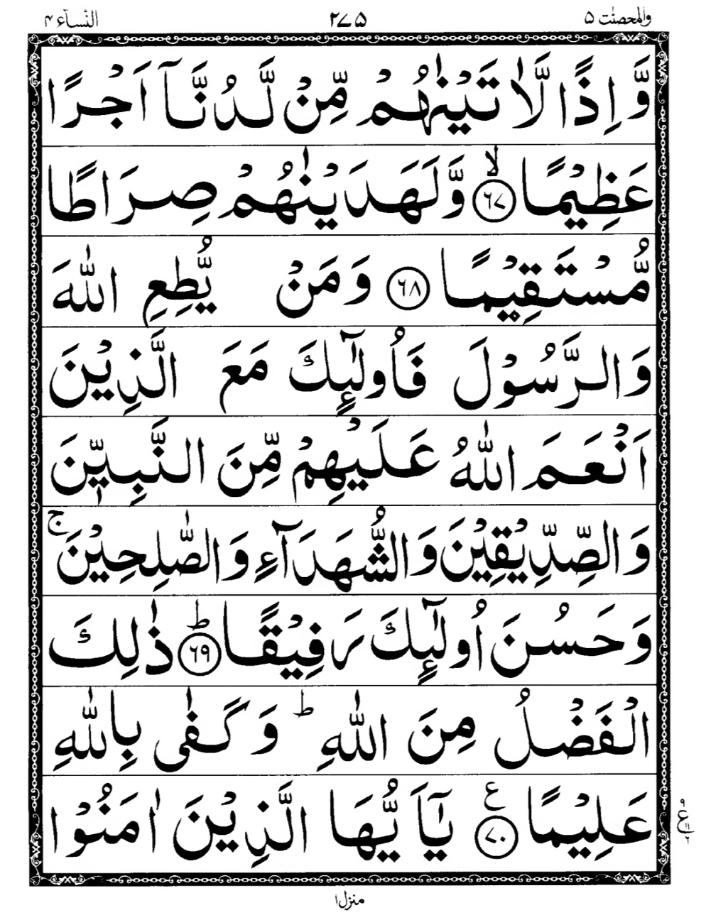 والمحصنت ۵ ۲۷۵ النسآء ۴
وَّاِذًا لَّاٰ تَيْنٰهُمْ مِّنْ لَّدُنَّاۤ اَجْرًا
عَظِيْمًا ۙ﴿۶۷﴾ وَّلَهَدَيْنٰهُمْ صِرَاطًا
مُّسْتَقِيْمًا ﴿۶۸﴾ وَمَنْ يُّطِعِ اللّٰهَ
وَالرَّسُوْلَ فَاُولٰٓئِكَ مَعَ الَّذِيْنَ
اَنْعَمَ اللّٰهُ عَلَيْهِمْ مِّنَ النَّبِيّٖنَ
وَالصِّدِّيْقِيْنَ وَالشُّهَدَآءِ وَالصّٰلِحِيْنَ ۚ
وَحَسُنَ اُولٰٓئِكَ رَفِيْقًا ؕ﴿۶۹﴾ ذٰلِكَ
الْفَضْلُ مِنَ اللّٰهِ ؕ وَكَفٰى بِاللّٰهِ
عَلِيْمًا ﴿۷۰﴾ ع يٰۤاَيُّهَا الَّذِيْنَ اٰمَنُوْا
منزل۱